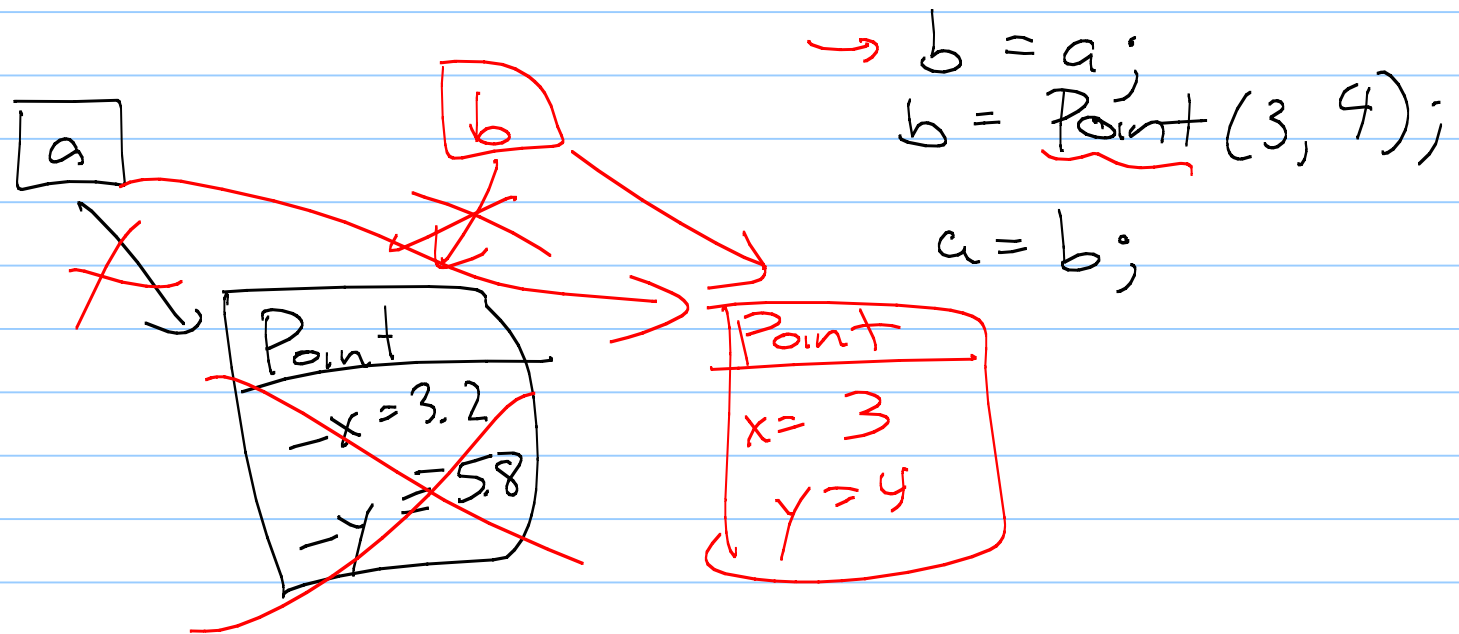 b = a;
b = Point (3, 4);
a = b;
a
b
Point
-x = 3.2
-y = 5.8
Point
x = 3
y = 4